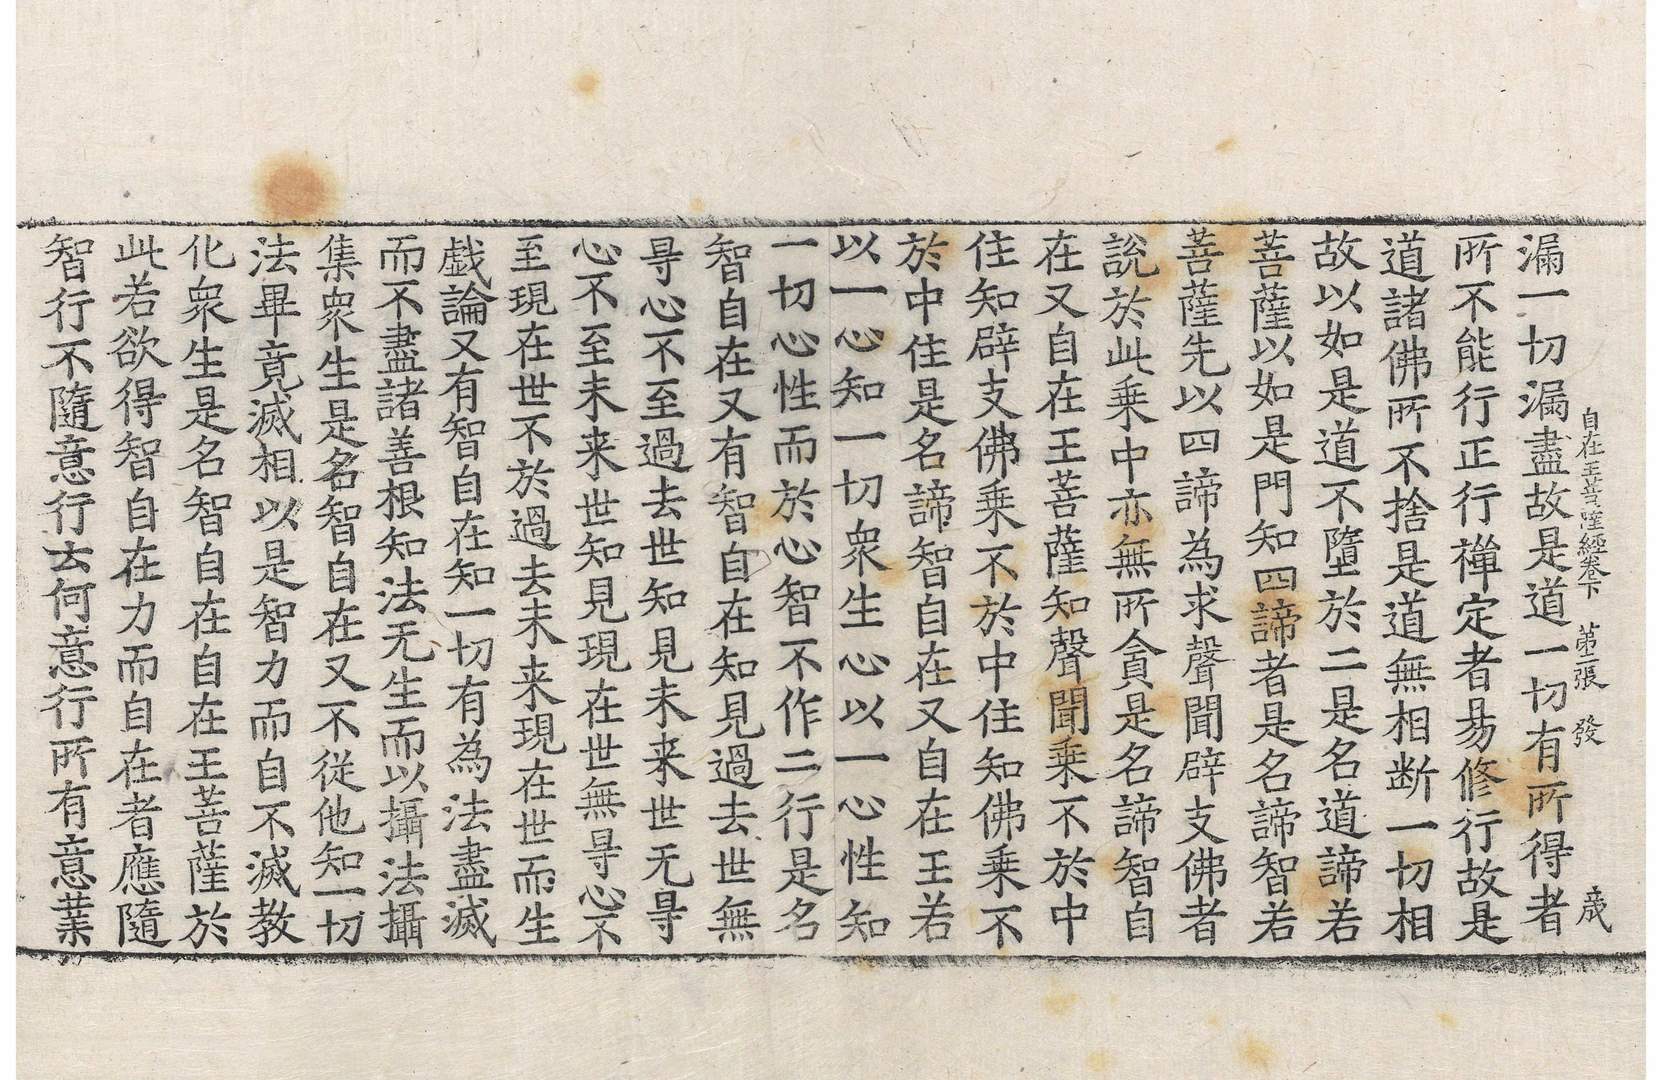 自在王菩薩經卷下　第二張　發　　歲
漏一切漏盡故是道一切有所得者
所不能行正行禪定者易修行故是
道諸佛所不捨是道無相断一切相
故以如是道不墮於二是名道諦若
菩薩以如是門知四諦者是名諦智若
菩薩先以四諦為求聲聞辟支佛者
說於此乘中亦無所貪是名諦智自
在又自在王菩薩知聲聞乘不於中
住知辟支佛乘不於中住知佛乘不
於中住是名諦智自在又自在王若
以一心知一切衆生心以一心性知
一切心性而於心智不作二行是名
智自在又有智自在知見過去世無
㝵心不至過去世知見未来世无㝵
心不至未来世知見現在世無㝵心不
至現在世不於過去未来現在世而生
戯論又有智自在知一切有為法盡滅
而不盡諸善根知法无生而以攝法攝
集衆生是名智自在又不從他知一切
法畢竟滅相以是智力而自不滅教
化衆生是名智自在自在王菩薩於
此若欲得智自在力而自在者應隨
智行不隨意行云何意行所有意業